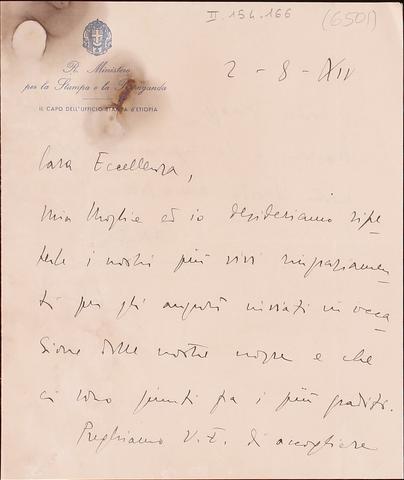 II.154.166
(6501)
R. Ministero
per la Stampa e la Propaganda
IL CAPO DELL'UFFICIO STAMPA D'ETIOPIA
2 - 8 - XIV
Cara Eccellenza,
mia Moglie ed io desideriamo ripe-
terle i nostri più vivi ringraziamen-
ti per gli auguri inviati in occa-
sione delle nostre nozze e che
ci sono giunti fra i più graditi.
Preghiamo V.E. di accogliere